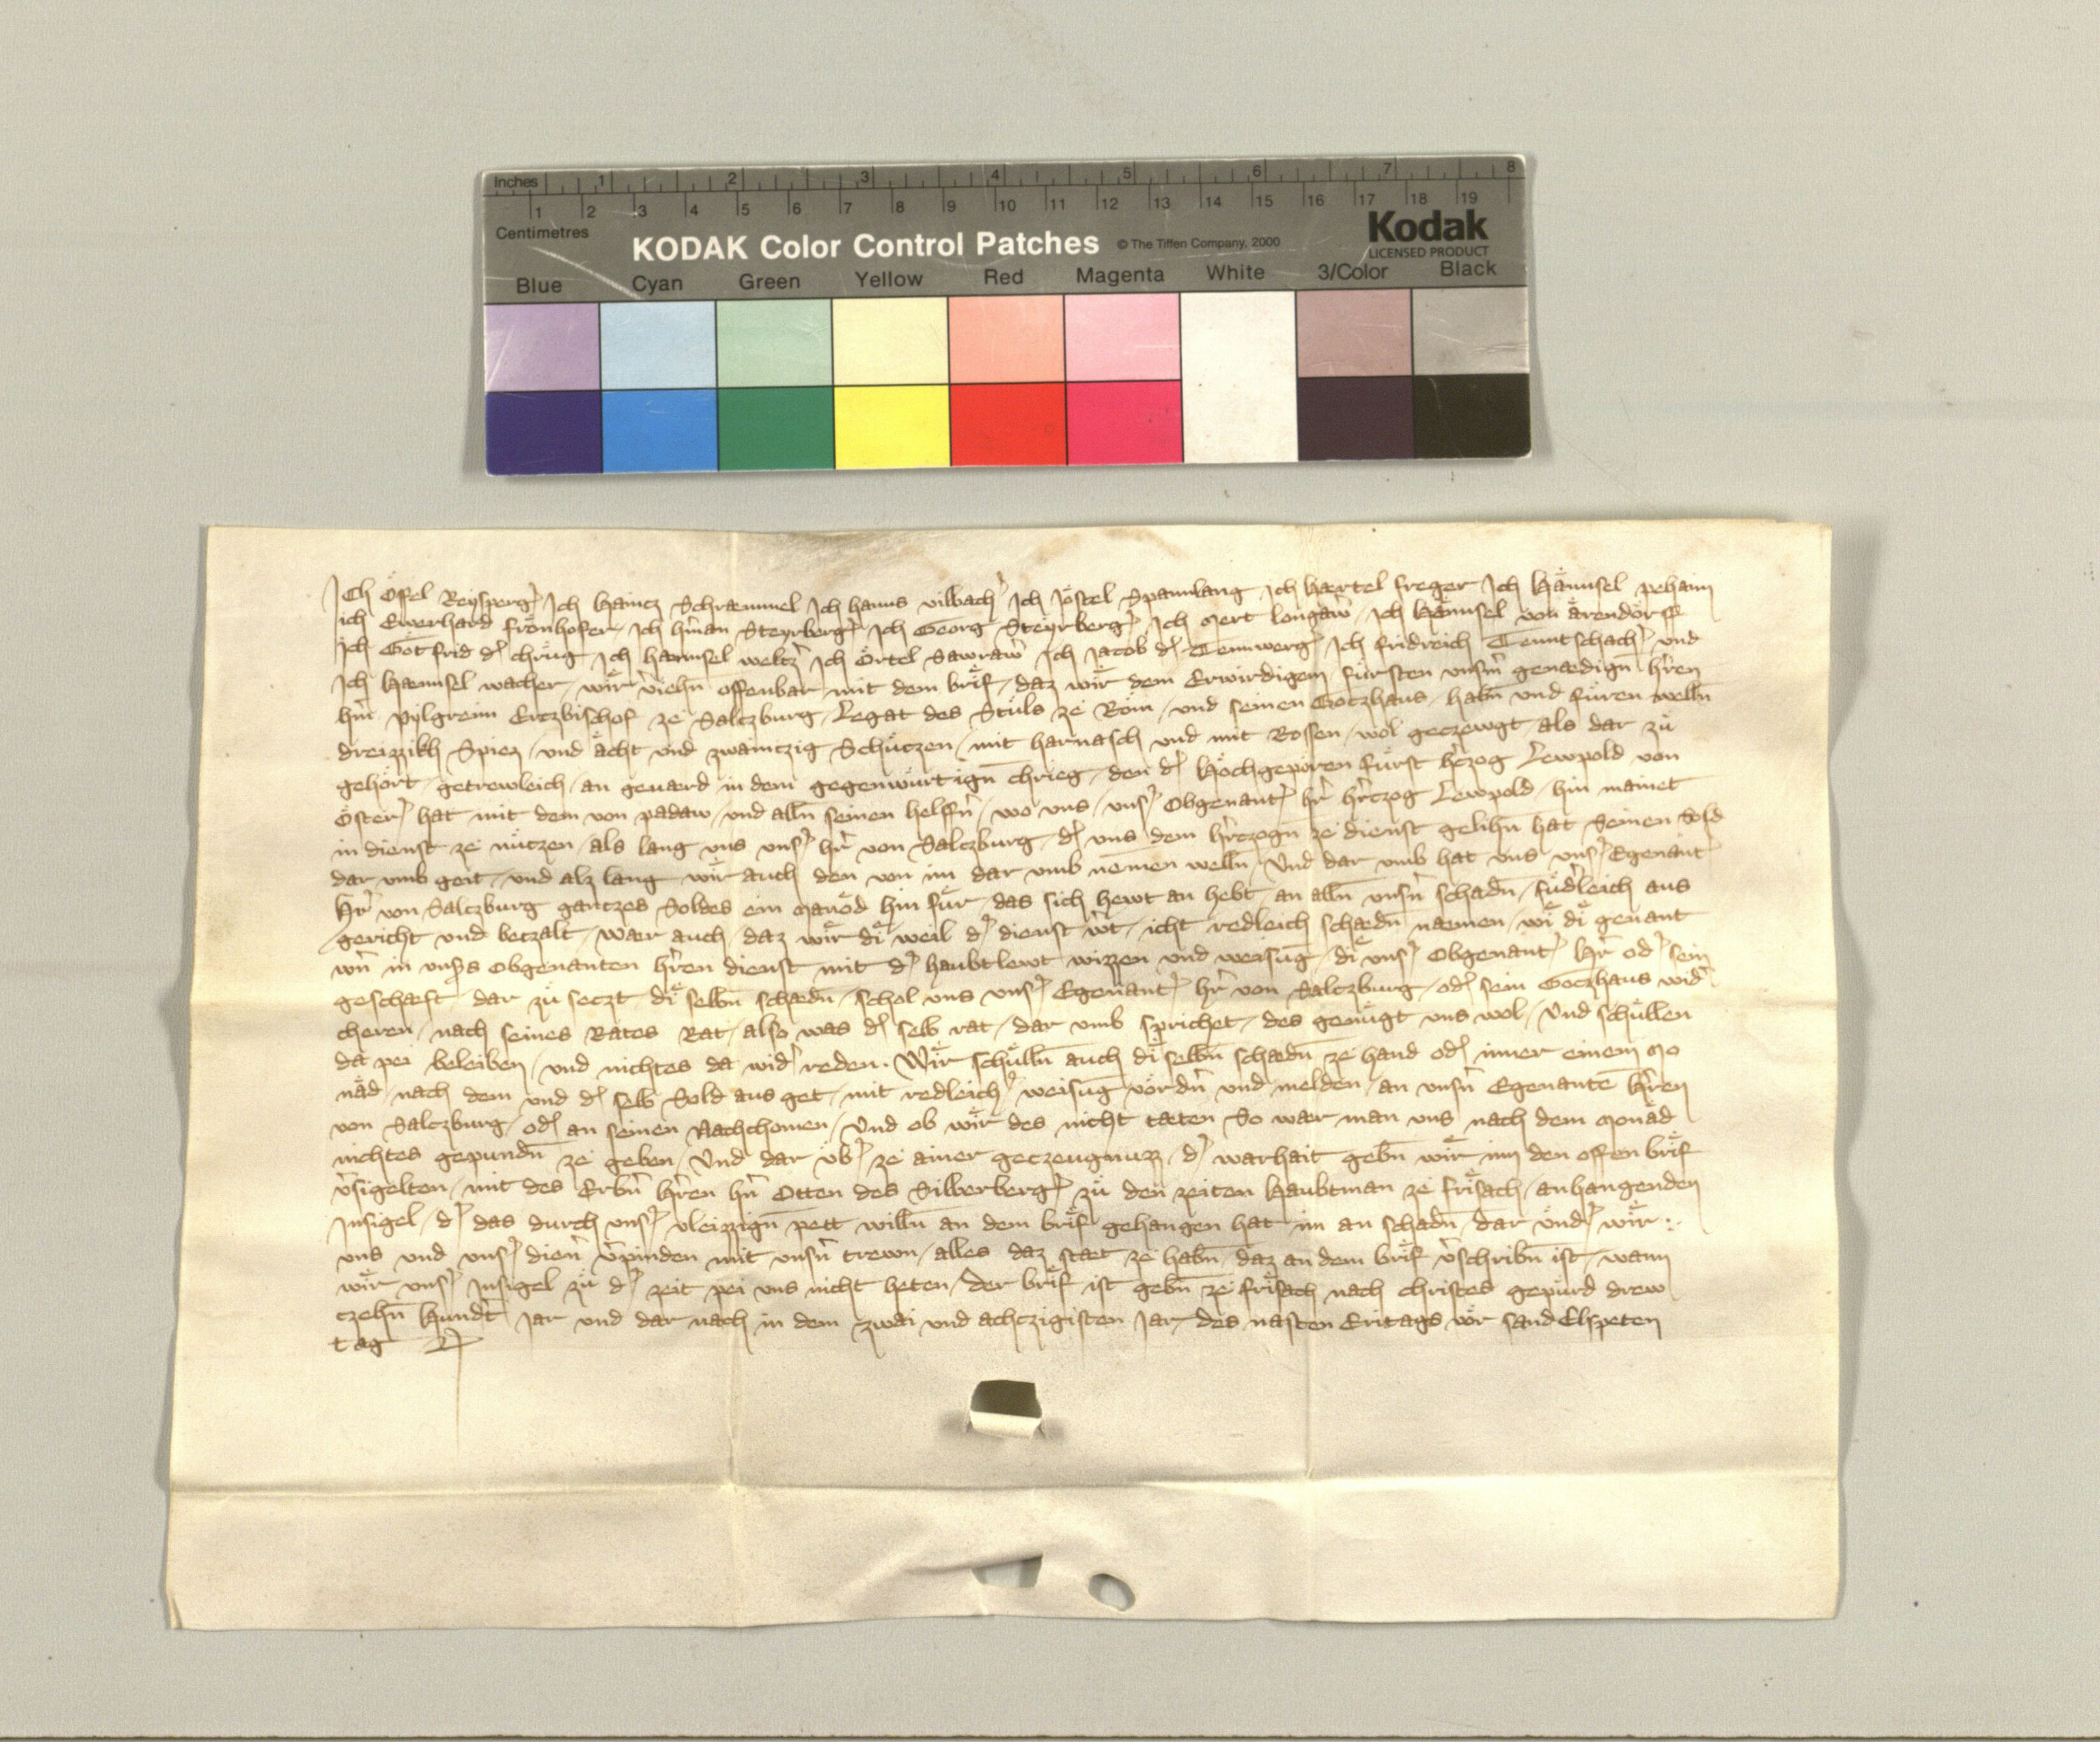 Inches 1 2 3 4 5 6 7 8
1 2 3 4 5 6 7 8 9 10 11 12 13 14 15 16 17 18 19
Centimetres
KODAK Color Control Patches © The Tiffen Company, 2000
Kodak
LICENSED PRODUCT
Blue Cyan Green Yellow Red Magenta White 3/Color Black
Ich Öfel Reysperg̛ Ich Haincz Schræmmel Ich hanns vilbach̛ Ich Jöstel Spannlang Ich hærtel freger Ich Hännsel pehaim
ich Ewerhard frönhofer Ich h̄man Steyrberg̛ Ich Georg Steyrberg̛ Ich mert longaw̛ Ich Hännsel von ärendörff
Ich Götfrid d̛ chrüg Ich hænnsel weltz̛ Ich Örtel Sawraw̛ Ich Jacob d̛ Tennwerg̛ Ich fridreich Tenntschach̛ vnd
Ich Hænnsel wacher wir v̛iehn̄ offenbar mit dem brif daz wir dem Erwirdigem fürsten vnserm̄ genædign̄ h̛ren
h̛n pylgreim Erczbischof ze Salczburg Legat des Stuls ze Röm vnd seinen Goczhaus habn̄ vnd füren welln̄
dreizzikh Spiez vnd ächt vnd zwainczig Schüczen mit harnasch vnd mit Rossen wol geczewgt als dar zü
gehört getrewleich an geuærd in dem gegenwürtign̄ chrieg den d̛ Höchgeporen fürst h̛czog Lewpold von
Öster̛ hat mit dem von padaw vnd alln̄ seinen helffn̄ wo vns vns̛ Obgenant̛ h̛r h̛czog Lewpold hin mainet
in dienst ze nüczen als lang vns vns̛ h̛r von Salczburg d̛ vns dem h̛czogn̄ ze dienst gelihn̄ hat Seinen Sold
dar vmb geit vnd alz lang wir auch den von im dar vmb nemen welln̄ Vnd dar vmb hat vns vns̛ Egenant̛
H̛r von Salczburg ganczes Soldes ein manöd hin für das sich hewt an hebt an alln̄ vnsn̄ schadn̄ füd̛leich aus
gericht vnd beczalt wær auch daz wir di weil d̛ dienst w̛t icht redleich schædn̄ næmen wi di genant
w̛n in vnsers obgenanten h̛ren dienst mit d̛ haubtlewt wizzen vnd weisūg di vns̛ Obgenant̛ H̛r od̛ sein
geschæft dar zü seczt di selbn̄ schædn̄ schol vns vns̛ Egenant̛ h̛r von Salczburg od̛ sein Goczhaus wid̛
cheren nach seines Rates Rat also was d̛ selb rat dar vmb sprichet des genügt vns wol Vnd schüllen
da pei beleiben vnd nichtes da wid̛ reden Wir schülln̄ auch di selbn̄ schædn̄ ze hand od̛ inner einem mo
näd nach dem vnd d̛ selb Sold aus get mit redleich̛ weisūg vördn̄ vnd melden an vnsn̄ Egenantē h̛ren
von Salczburg od̛ an seinen Nachchomen Vnd ob wir des nicht tæten So wær man vns nach dem monäd
nichtes gepundn̄ ze geben Vnd dar vb̛ ze ainer geczeugnuzz d̛ warhait gebn̄ wir im den offen brif
v̛sigelten mit des Erbn̄ h̛ren h̛n Otten des Silberberg̛ zü den zeiten Haubtman ze frisach anhangenden
Insigel d̛ das durch vns̛ vleizzign̄ pett willn̄ an dem brif gehangen hat im an schadn̄ dar vnd̛ wir
vns vnd vns̛ dien̛ v̛pinden mit vnsn̄ trewn alles daz stæt ze habn̄ daz an dem brif v̛schribn̄ ist wann
wir vns̛ Insigel zü d̛ zeit pei vns nicht heten Der brif ist gebn̄ ze frisach nach christes gepürd drew
czehn̄ Hundt̛ Jar vnd dar nach in dem zwai vnd achczigisten Jar des nasten Eritags vor sand Elspeten
tag